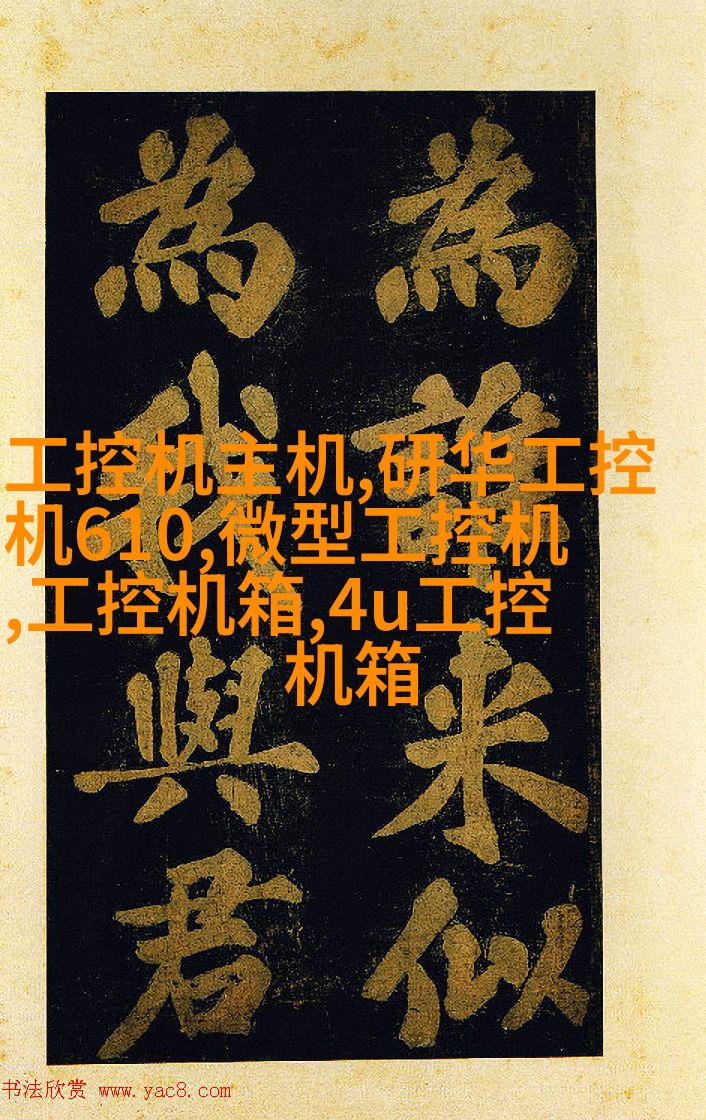 為誰来似
為我與君
工控机主机,研华工控
机610,微型工控机
,工控机箱,4u工控
机箱
书法欣赏 www.yac8.com